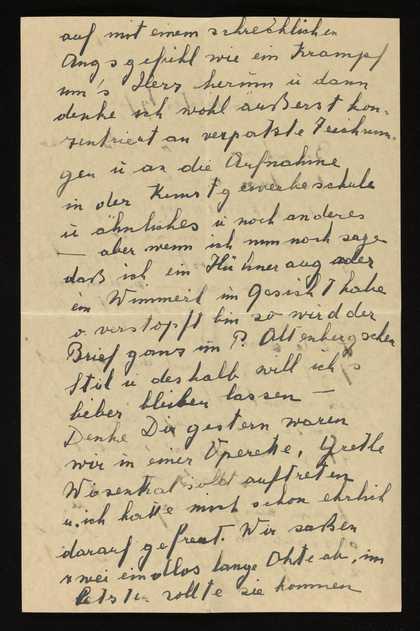 auf mit einem schrecklichen
Angsgefühl wie ein Krampf
um's Herz herum u dann
denke ich wohl äußerst kon-
zentriert an verpatzte Zeichnun-
gen u an die Aufnahme
in der Kunstgewerbeschule
u ähnliches u noch anderes
– aber wenn ich nun noch sage
daß ich ein Hühneraug oder
ein Wimmerl im Gesicht habe
o verstopft bin so wird der
Brief ganz im P. Altenbergschen
Stil u deshalb will ich's
lieber bleiben lassen –
Denke Dir gestern waren
wir in einer Operette, Grethe
Wiesenthal sollte auftreten
u. ich hatte mich schon ehrlich
darauf gefreut. Wir saßen
zwei endlos lange Akte ab, im
letzten sollte sie kommen